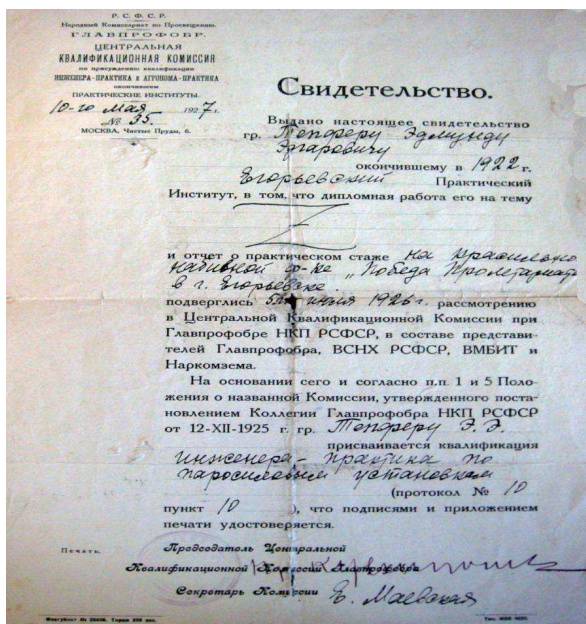 Р. С. Ф. С. Р.
Народный Комиссариат по Просвещению.
ГЛАВПРОФОБР.
ЦЕНТРАЛЬНАЯ
КВАЛИФИКАЦИОННАЯ КОМИССИЯ
по присуждению квалификации
ИНЖЕНЕРА-ПРАКТИКА и АГРОНОМА-ПРАКТИКА
окончившим
ПРАКТИЧЕСКИЕ ИНСТИТУТЫ.
10-го мая 1927 г.
№ 35.
МОСКВА, Чистые Пруды, 6.
Свидетельство.
Выдано настоящее свидетельство
гр. Тепферу Эдмунду
Эгаровичу
окончившему в 1922 г.
Егорьевский Практический
Институт, в том, что дипломная работа его на тему
и отчет о практическом стаже на красильно
набивной ф-ке „Победа Пролетариата
в г. Егорьевске.
подверглись июля 1926 г. рассмотрению
в Центральной Квалификационной Комиссии при
Главпрофобре НКП РСФСР, в составе представи-
телей Главпрофобра, ВСНХ РСФСР, ВМБИТ и
Наркомзема.
На основании сего и согласно п.п. 1 и 5 Поло-
жения о названной Комиссии, утвержденного поста-
новлением Коллегии Главпрофобра НКП РСФСР
от 12-XII-1925 г. гр. Тепферу Э. Э.
присваивается квалификация
инженера-практика по
паросиловым установкам
(протокол № 10
пункт 10 ), что подписями и приложением
печати удостоверяется.
Печать.
Председатель Центральной
Квалификационной Комиссии Главпрофобра
Секретарь Комиссии Е. Маевская